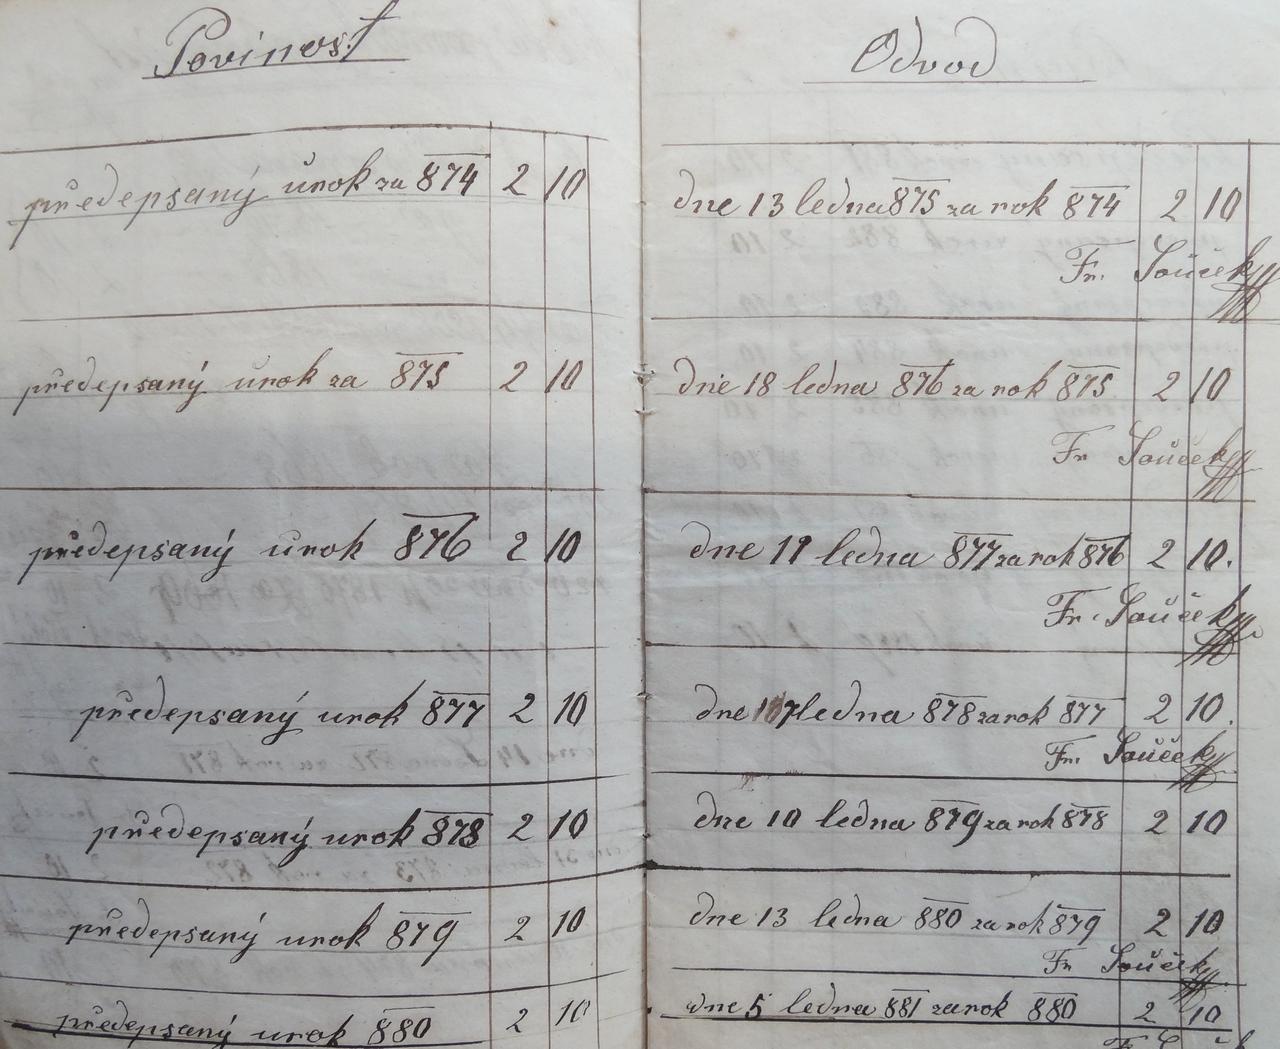 Povinost
předepsaný úrok za 874 2 10
předepsaný urok za 875 2 10
předepsaný urok 876 2 10
předepsaný urok 877 2 10
předepsaný urok 878 2 10
předepsaný urok 879 2 10
předepsaný urok 880 2 10
Odvod
dne 13 ledna 875 za rok 874 2 10
Fr. Souček
dne 18 ledna 876 za rok 875 2 10
Fr Souček
dne 11 ledna 877 za rok 876 2 10.
Fr. Souček
dne 17 ledna 878 za rok 877 2 10.
Fr. Souček
dne 10 ledna 879 za rok 878 2 10
dne 13 ledna 880 za rok 879 2 10
Fr Souček
dne 5 ledna 881 za rok 880 2 10